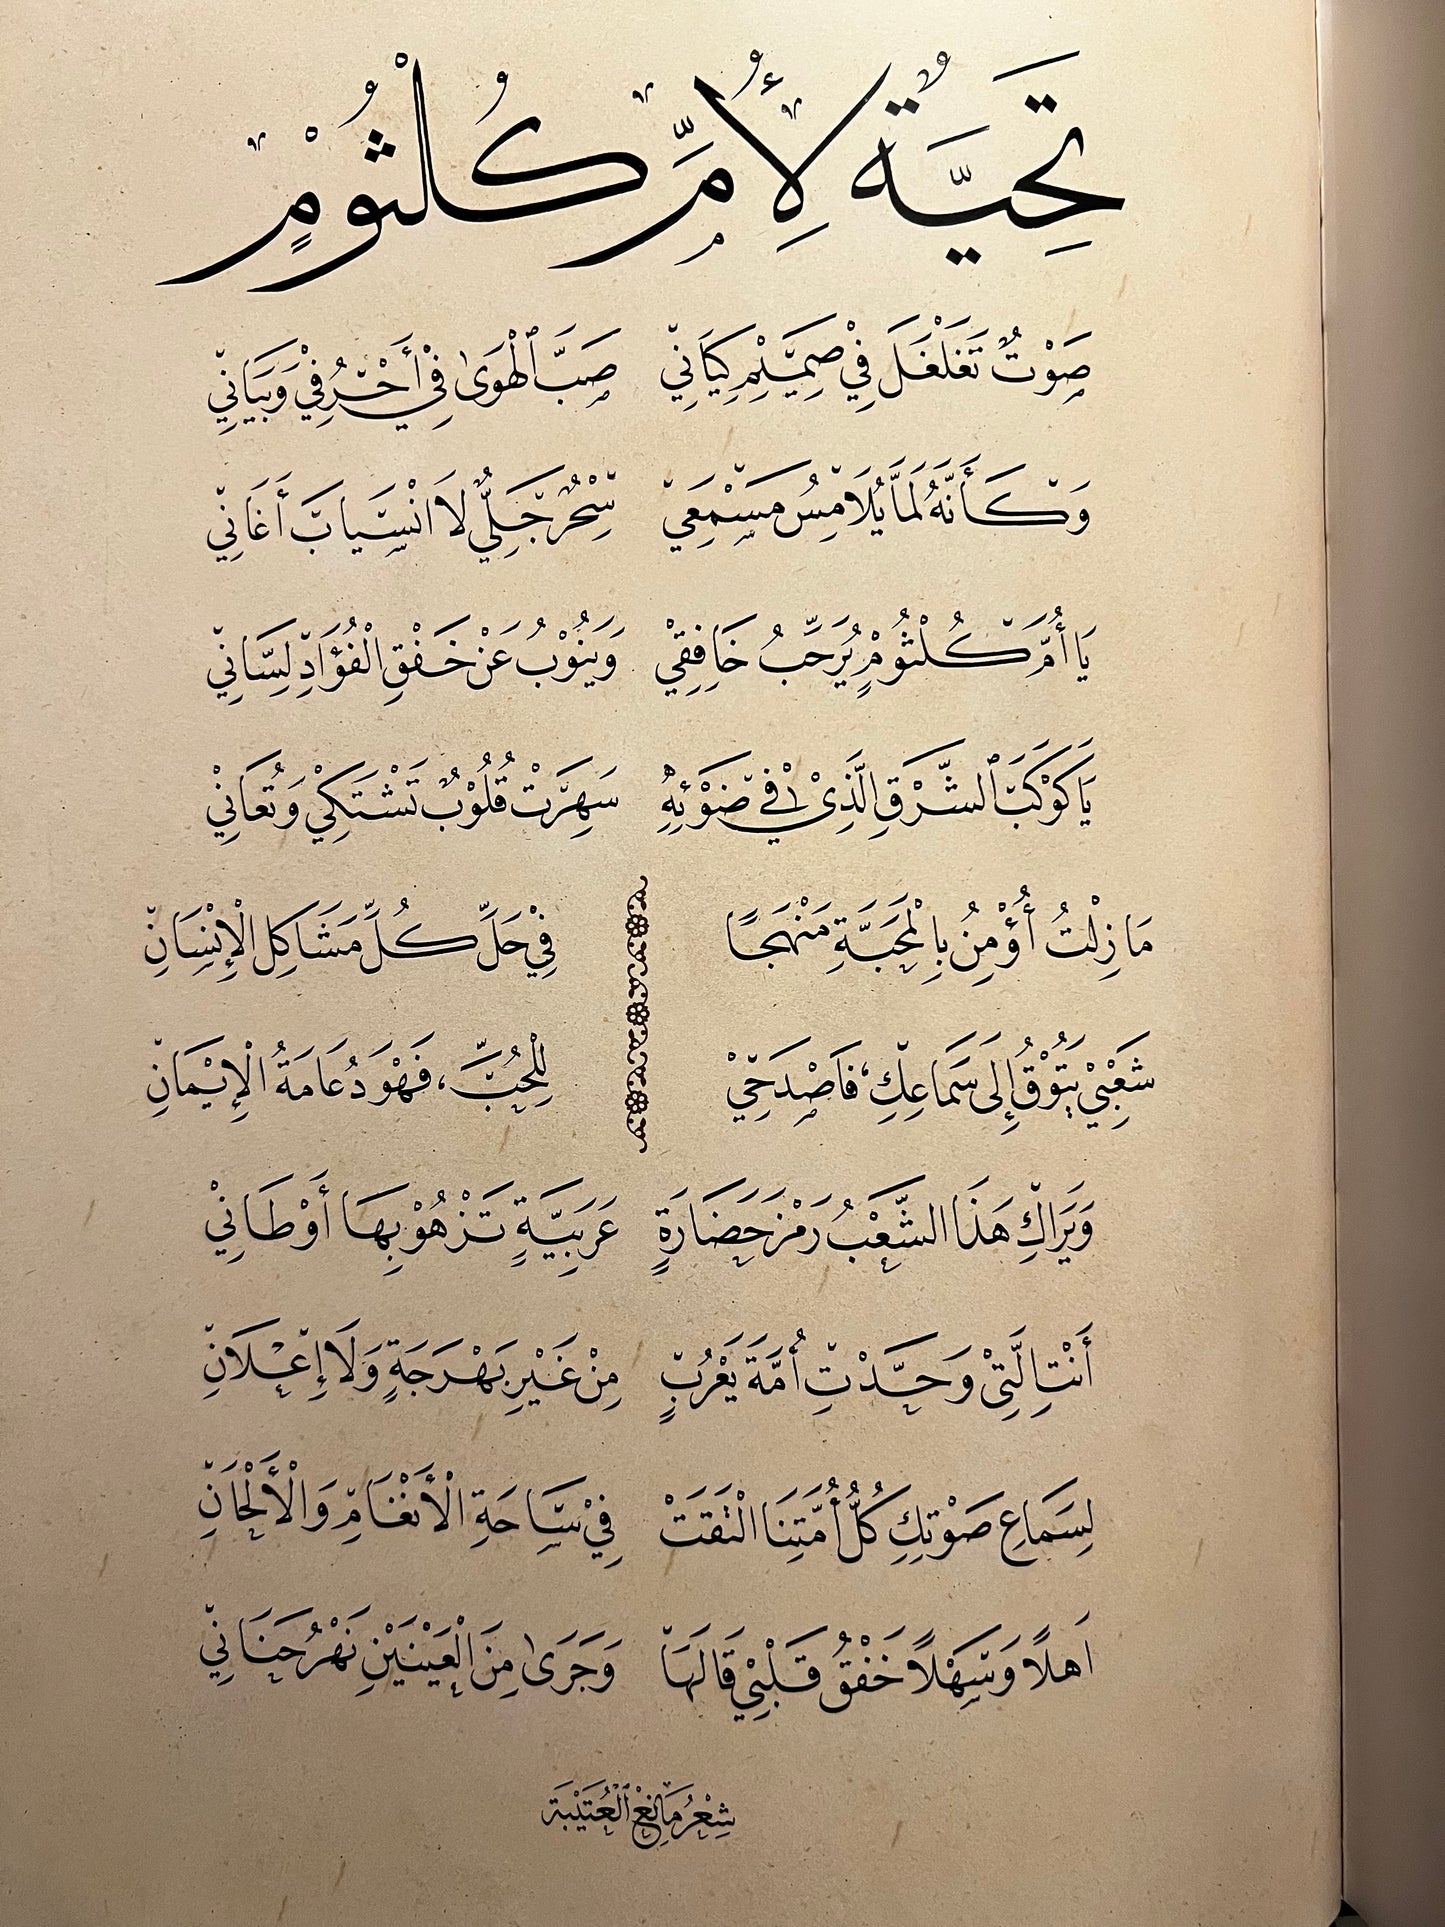 تَحِيَّةٌ لِأُمِّ كُلْثُومٍ
صَوْتٌ تَغَلْغَلَ فِيْ صَمِيْمِ كِيَانِيْ صَبَّ ٱلْهَوَىٰ فِيْ أَحْرُفِيْ وَبَيَانِيْ
وَكَأَنَّهُ لَمَّا يُلَامِسُ مَسْمَعِيْ سِحْرٌ جَلِيٌّ لَا انْسِيَابَ أَغَانِيْ
يَا أُمَّ كُلْثُومٍ يُرَحِّبُ خَافِقِيْ وَيَنُوْبُ عَنْ خَفْقِ الْفُؤَادِ لِسَانِيْ
يَا كَوْكَبَ ٱلشَّرْقِ الَّذِيْ فِيْ ضَوْئِهِ سَهِرَتْ قُلُوْبٌ تَشْتَكِيْ وَتُعَانِيْ
مَا زِلْتُ أُؤْمِنُ بِالْمَحَبَّةِ مَنْهَجًا فِيْ حَلِّ كُلِّ مَشَاكِلِ الْإِنْسَانِ
شَعْبِيْ يَتُوْقُ إِلَى سَمَاعِكِ، فَاصْدَحِيْ لِلْحُبِّ، فَهْوَ دُعَامَةُ الْإِيْمَانِ
وَيَرَاكِ هَذَا الشَّعْبُ رَمْزَ حَضَارَةٍ عَرَبِيَّةٍ تَزْهُوْ بِهَا أَوْطَانِيْ
أَنْتِ الَّتِيْ وَحَّدْتِ أُمَّةَ يَعْرُبٍ مِنْ غَيْرِ بَهْرَجَةٍ وَلَا إِعْلَانِ
لِسَمَاعِ صَوْتِكِ كُلُّ أُمَّتِنَا الْتَقَتْ فِيْ سَاحَةِ الْأَنْغَامِ وَالْأَلْحَانِ
اَهلًا وَسَهْلًا خَفْقُ قَلْبِيْ قَالَهَا وَجَرَىٰ مِنَ الْعَيْنَيْنِ نَهْرُ حَنَانِيْ
شِعْرُ مَانِعْ ٱلْعُتَيْبَة